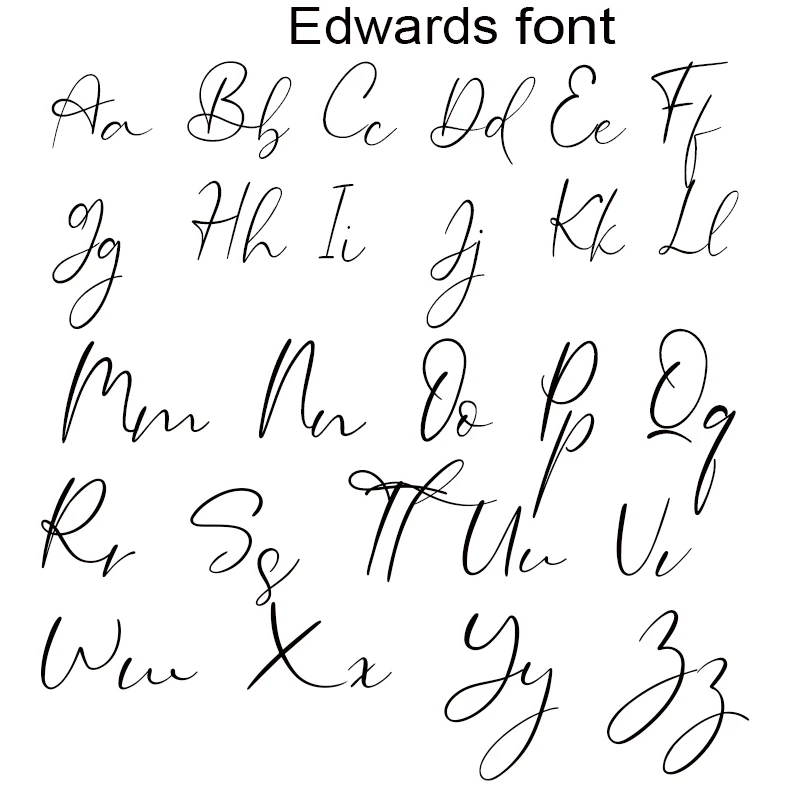 Edwards font
Aa Bb Cc Dd Ee Ff
Gg Hh Ii Jj Kk Ll
Mm Nn Oo Pp Qq
Rr Ss Tt Uu Vv
Ww Xx Yy Zz